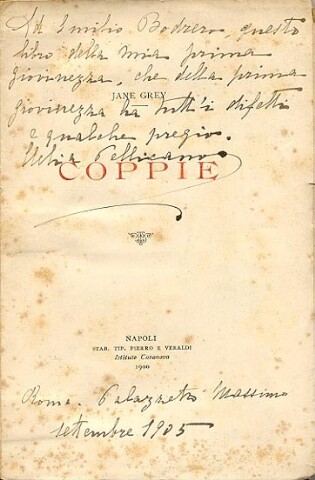 A Emilio Bodrero, questo
libro della mia prima
giovinezza, che della prima
JANE GREY
giovinezza ha tutt'i difetti
e qualche pregio.
Clelia Pellicano
COPPIE
NAPOLI
STAB. TIP. PIERRO E VERALDI
Istituto Casanova
1900
Roma. Palazzetto Massimo
settembre 1905